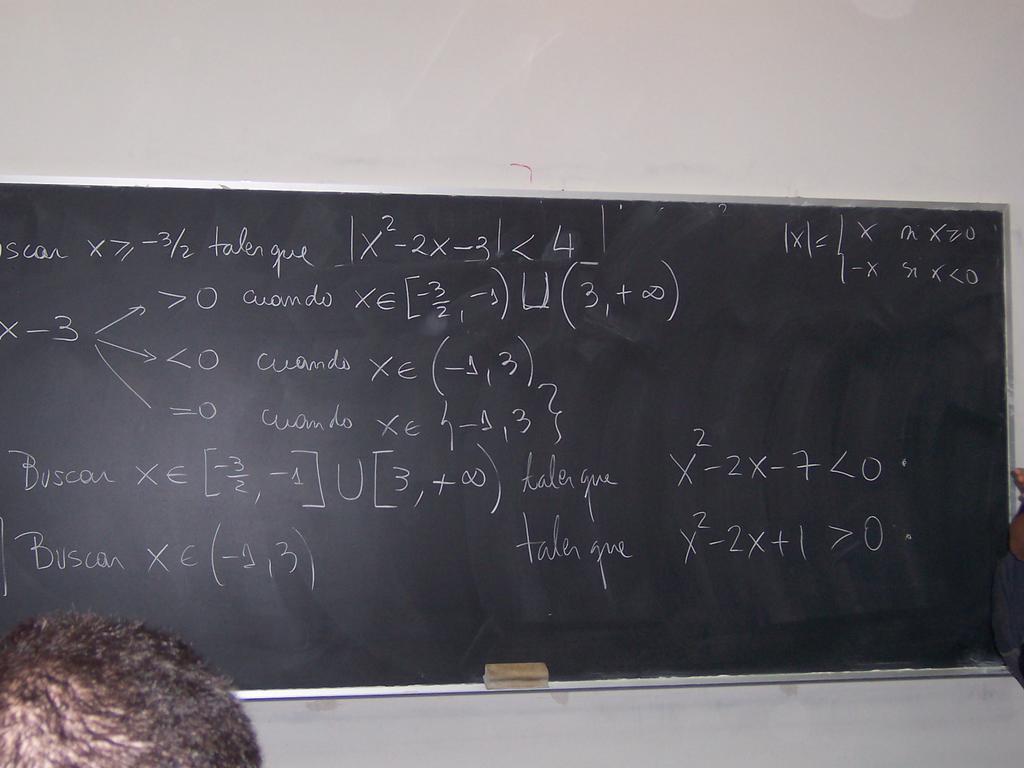 scar x ≥ -3/2 tales que |x² - 2x - 3| < 4
|x| = { x si x ≥ 0
-x si x < 0
x - 3
> 0 cuando x ∈ [-3/2, -1) ∪ (3, +∞)
< 0 cuando x ∈ (-1, 3)
= 0 cuando x ∈ {-1, 3}
Buscar x ∈ [-3/2, -1] ∪ [3, +∞) tales que x² - 2x - 7 < 0
Buscar x ∈ (-1, 3) tales que x² - 2x + 1 > 0